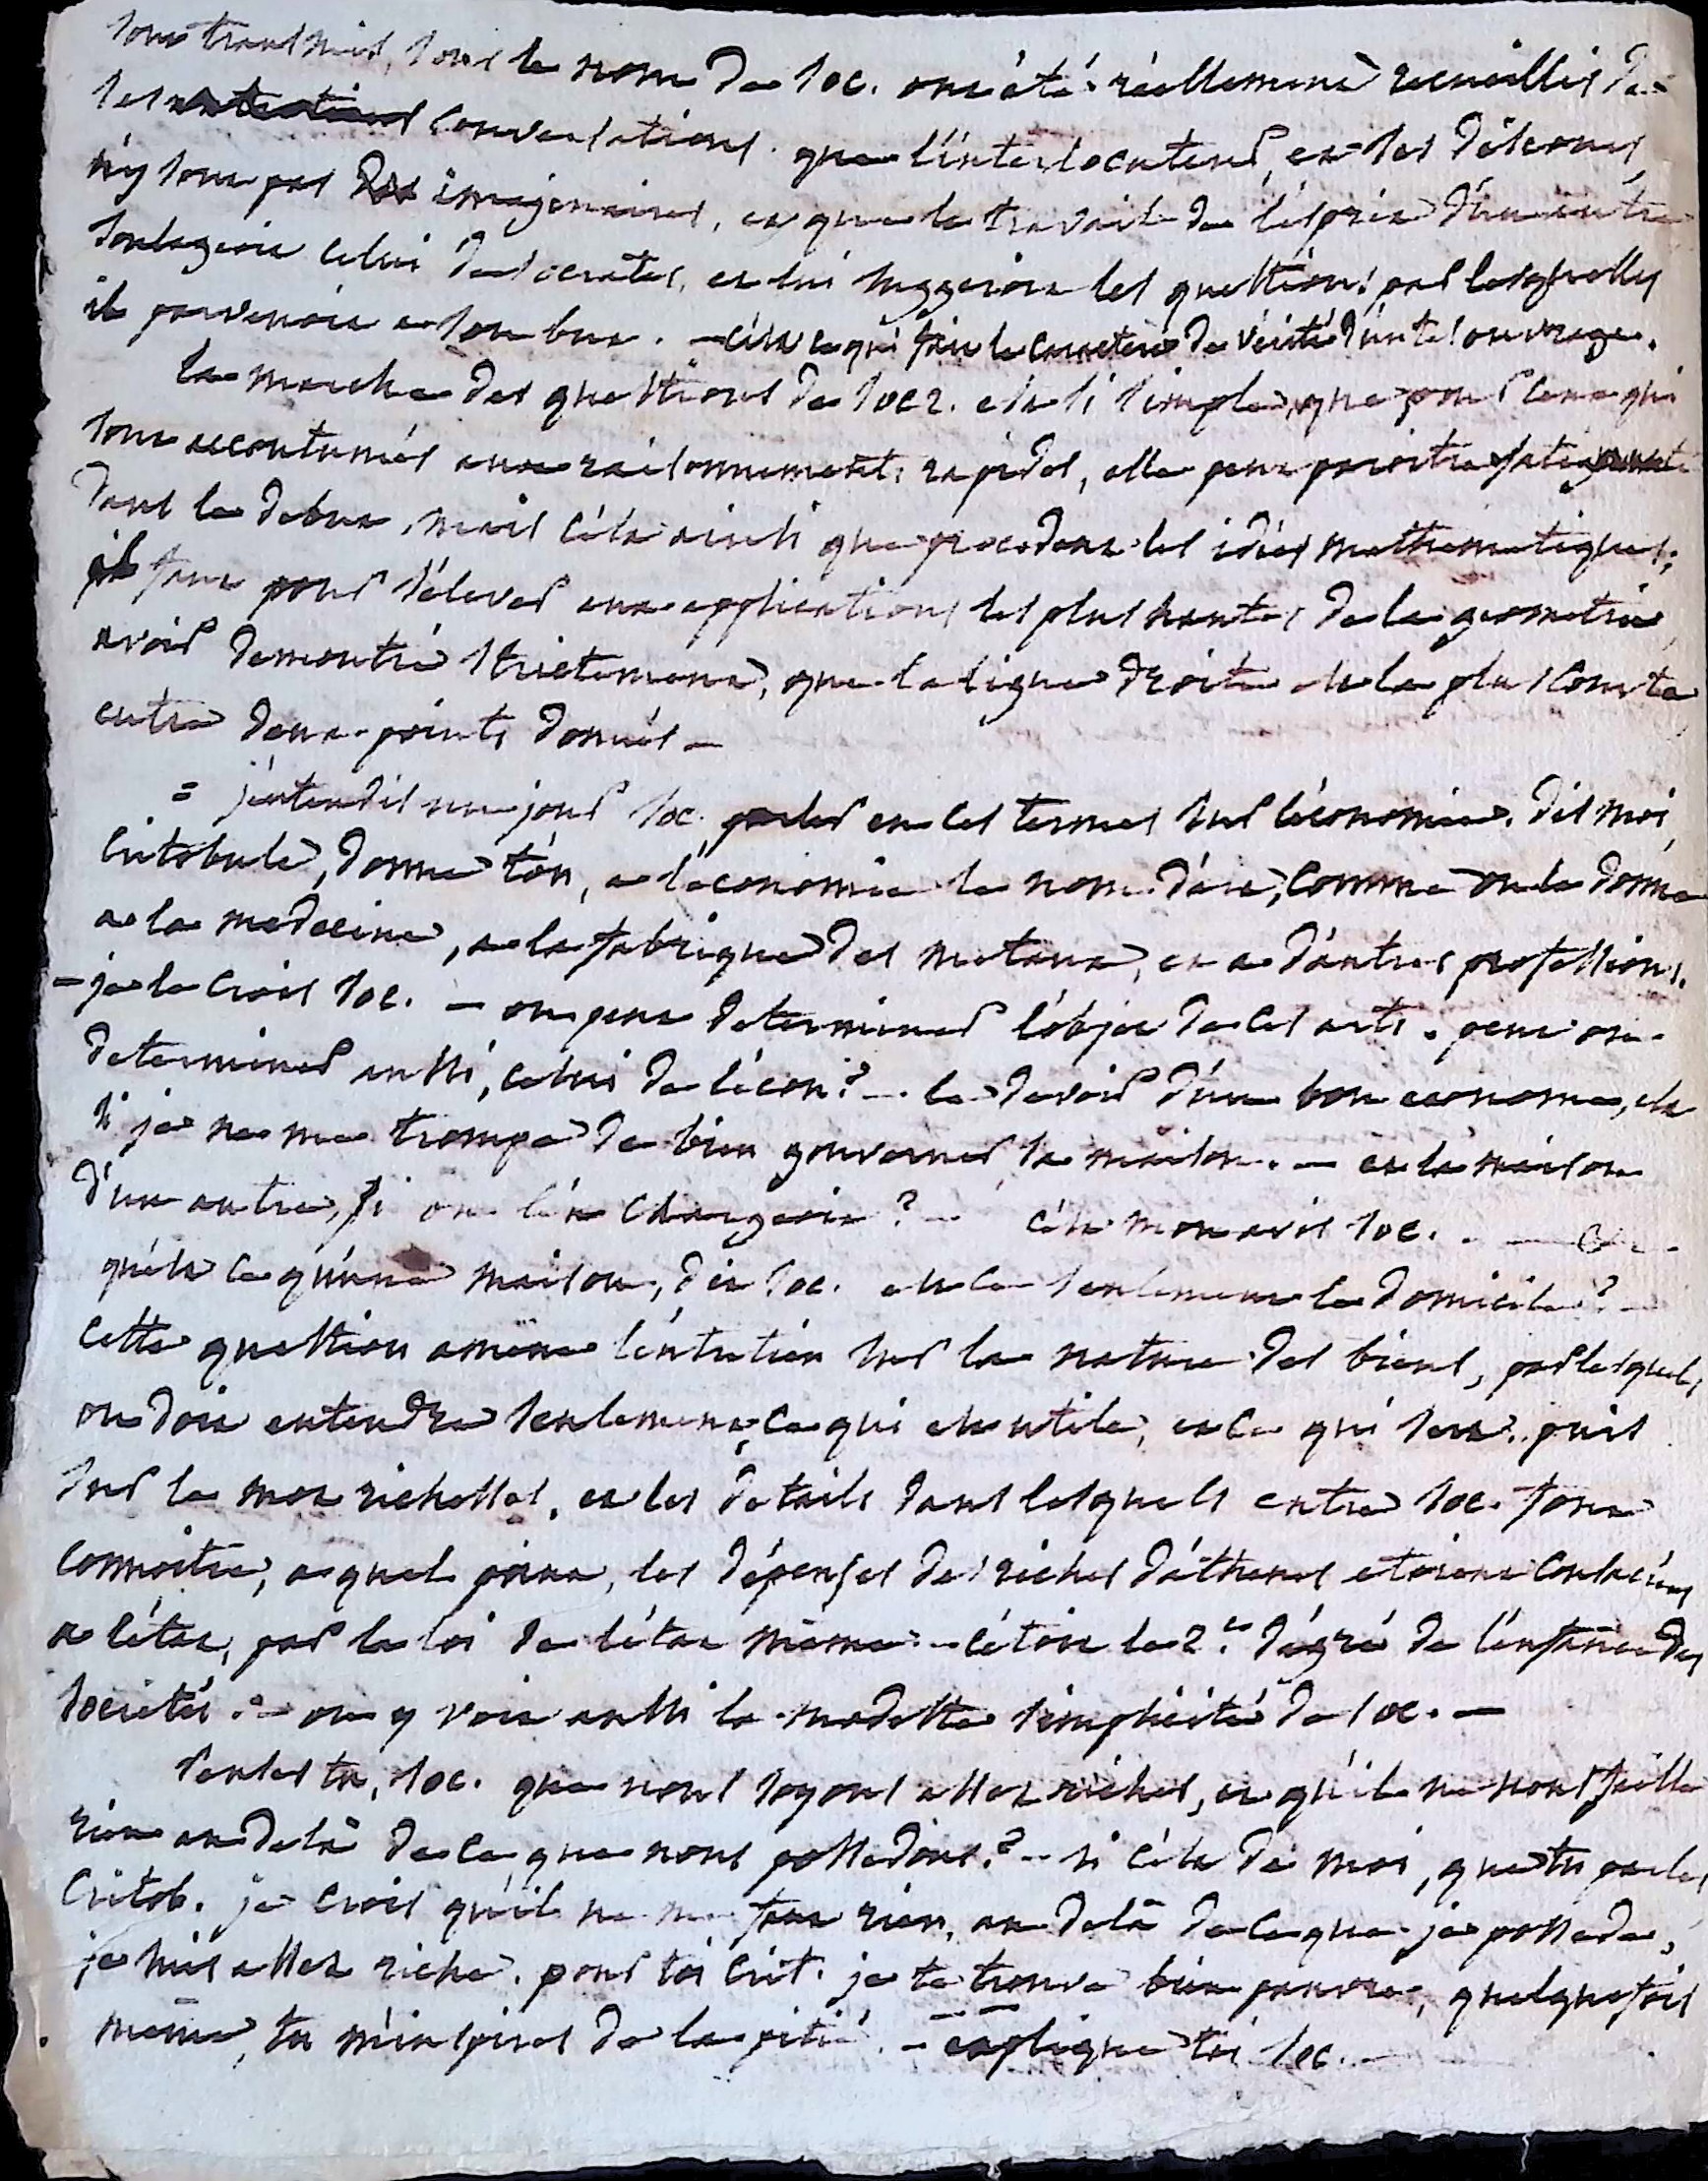 sont transmis, sous le nom de Soc. ont été réellement recueillis de
ses conversations. que l'interlocuteur, et les discours,
n'y sont pas imaginaires, et que le travail de l'esprit d'un autre
soulageoit celui de Socrates, et lui suggeroit les questions par lesquelles
il parvenoit a son but. – c'est ce qui fait le caractere de vérité d'un tel ouvrage.
la marche des questions de Socr. est si simple, que pour ceux qui
sont accoutumés aux raisonnements rapides, elle peut paroitre fatigante
dans le debut, mais c'est ainsi que procedent les idées mathematiques;
il faut pour s'élever aux applications les plus hautes de la geometrie
avoir demontré strictement, que la ligne droite est la plus courte
entre deux points donnés –
= j'entendis un jour Soc. parler en ces termes sur l'économie. dis moi
Critobule, donne t'on, a l'économie le nom d'art, comme on le donne
a la medecine, a la fabrique des metaux, et a d'autres professions.
– je le crois Soc. – on peut determiner l'objet de ces arts. peut on
determiner aussi, celui de l'écon? – le devoir d'un bon econome, est
si je ne me trompe de bien gouverner sa maison. – et la maison
d'un autre, si on l'en chargeoit? – c'est mon avis Soc. –
qu'est ce qu'une maison, dit Soc. est ce seulement le domicile? –
cette question amene l'entretien sur la nature des biens, par lesquels
on doit entendre seulement ce qui est utile, et ce qui sert. puis
sur le mot richesses, et les details dans lesquels entre Soc. font
connoitre, a quel point, les dépenses des riches d'athenes etoient consacrées
a l'état, par la loi de l'état même. – c'étoit le 2.e dégré de l'enfance des
societés. – on y voit aussi la modeste simplicité de Soc. –
penses tu, Soc. que nous soyons assez riches, et qu'il ne nous faille
rien au delà de ce que nous possedons? – si c'est de moi, que tu parles
Critob. je crois qu'il ne me faut rien, au delà de ce que je possede,
je suis assez riche. pour toi Crit. je te trouve bien pauvre, quelquefois
même, tu m'inspires de la pitié. – explique toi Soc. –